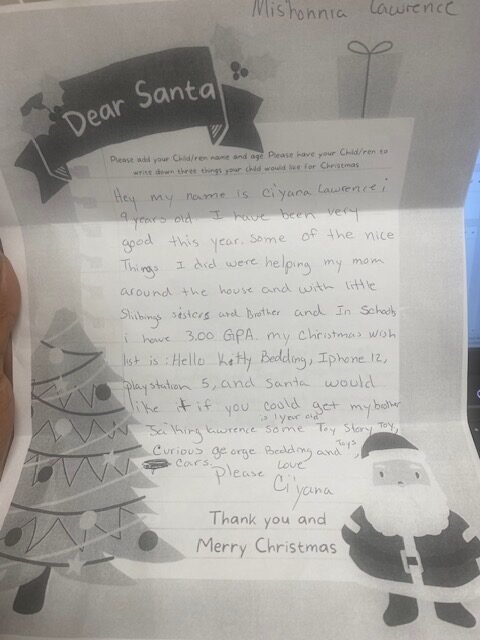 Mishonnia Lawrence
Dear Santa
Please add your Child/ren name and age Please have your Child/ren to
write down three things your child would like for Christmas
Hey my name is Ci'yana Lawrence, i
9 years old. I have been very
good this year. Some of the nice
Things I did were helping my mom
around the house and with little
Sliibings sisters and Brother and In School,
i have 3.00 GPA. my Christmas wish
list is: Hello Kitty Bedding, Iphone 12,
playstation 5, and Santa would
like it if you could get my brother
Saiking Lawrence is 1 year old some Toy Story Toy,
Curious george Bedding and Toys,
Cars. Please Love
Ci'yana
Thank you and
Merry Christmas